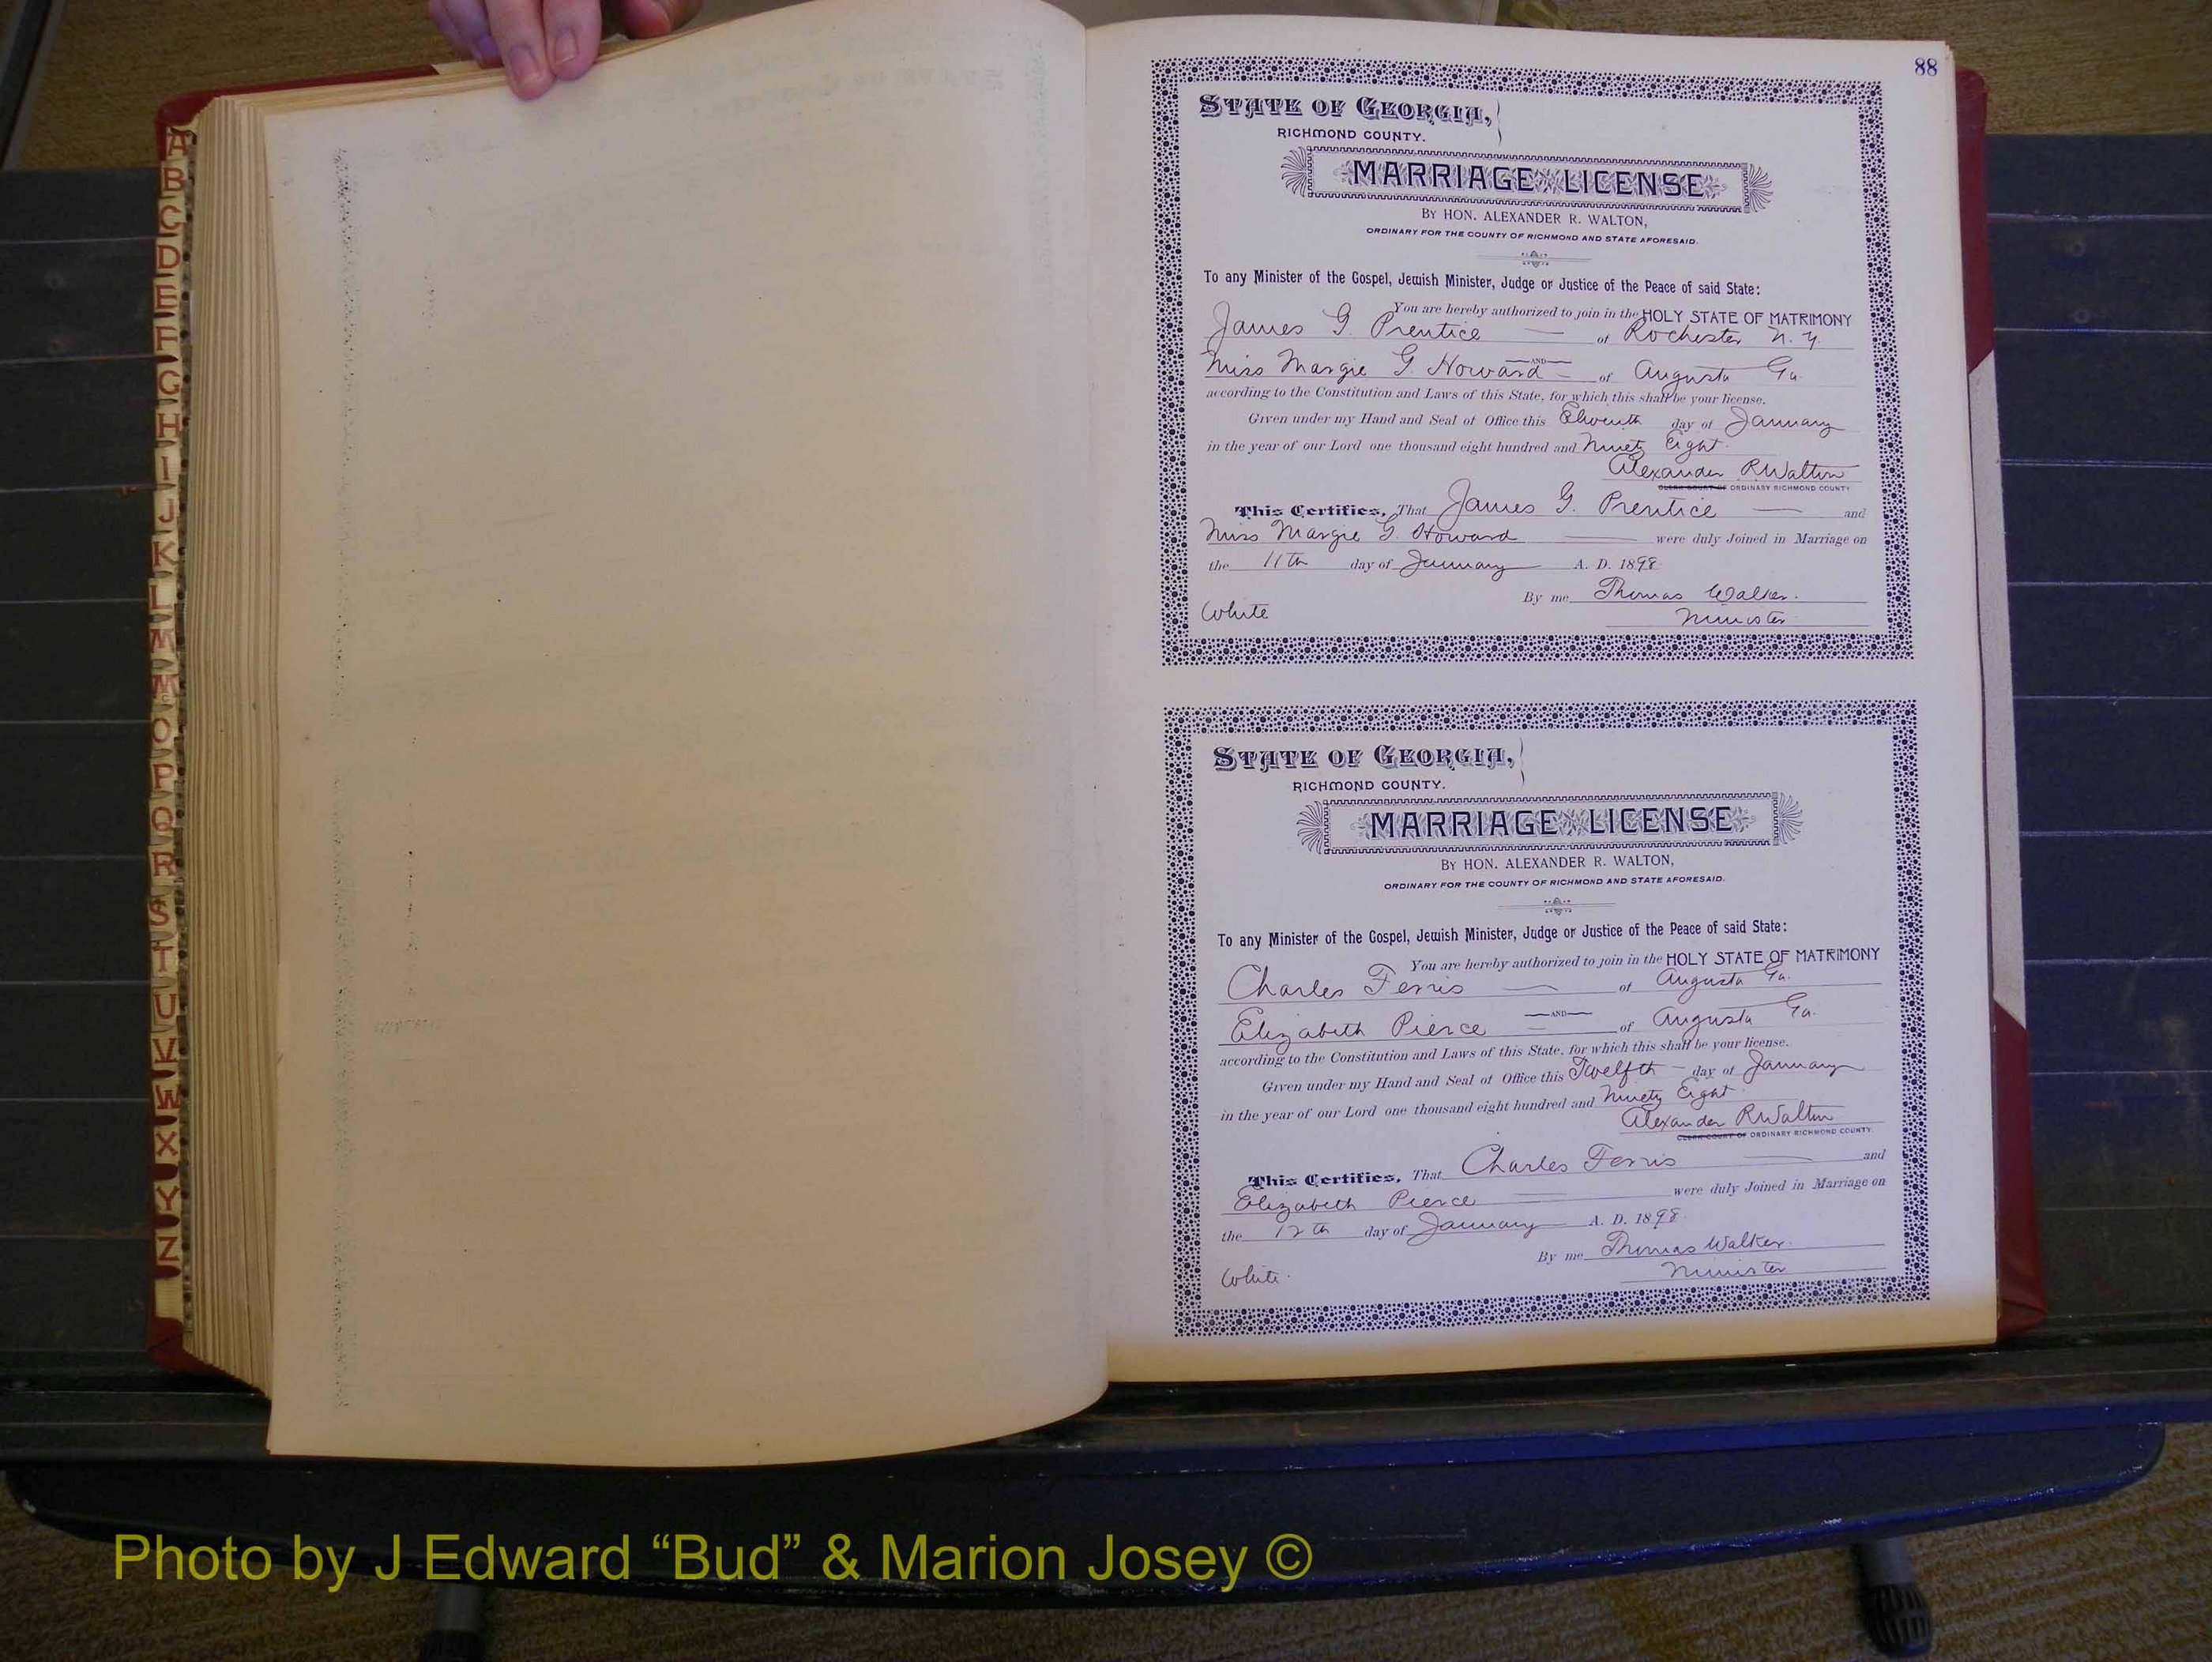 88
A
B
C
D
E
F
G
H
I
J
K
L
M
Mc
O
P
Q
R
S
T
U
V
W
X
Y
Z
STATE OF GEORGIA,
RICHMOND COUNTY.
MARRIAGE LICENSE
BY HON. ALEXANDER R. WALTON,
ORDINARY FOR THE COUNTY OF RICHMOND AND STATE AFORESAID.
To any Minister of the Gospel, Jewish Minister, Judge or Justice of the Peace of said State:
You are hereby authorized to join in the HOLY STATE OF MATRIMONY
James G. Prentice of Rochester N. Y.
AND
Miss Margie G. Howard of Augusta Ga.
according to the Constitution and Laws of this State, for which this shall be your license.
Given under my Hand and Seal of Office this Eleventh day of January
in the year of our Lord one thousand eight hundred and Ninety Eight.
Alexander R Walton
CLERK COURT OF ORDINARY RICHMOND COUNTY
This Certifies, That James G. Prentice and
Miss Margie G. Howard were duly Joined in Marriage on
the 11th day of January A. D. 1898
By me Thomas Walker.
White Minister
STATE OF GEORGIA,
RICHMOND COUNTY.
MARRIAGE LICENSE
BY HON. ALEXANDER R. WALTON,
ORDINARY FOR THE COUNTY OF RICHMOND AND STATE AFORESAID.
To any Minister of the Gospel, Jewish Minister, Judge or Justice of the Peace of said State:
You are hereby authorized to join in the HOLY STATE OF MATRIMONY
Charles Ferris of Augusta Ga.
AND
Elizabeth Pierce of Augusta Ga.
according to the Constitution and Laws of this State, for which this shall be your license.
Given under my Hand and Seal of Office this Twelfth day of January
in the year of our Lord one thousand eight hundred and Ninety Eight.
Alexander R Walton
CLERK COURT OF ORDINARY RICHMOND COUNTY.
This Certifies, That Charles Ferris and
Elizabeth Pierce were duly Joined in Marriage on
the 12th day of January A. D. 1898.
By me Thomas Walker.
White. Minister
Photo by J Edward “Bud” & Marion Josey ©